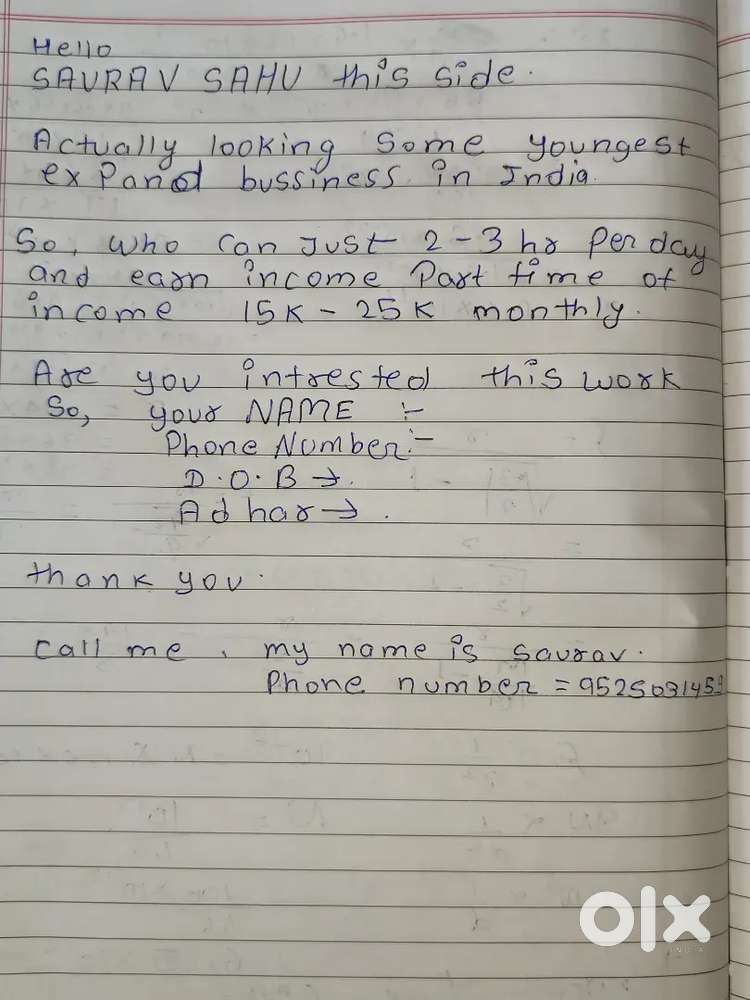 Hello
SAURAV SAHU this side.
Actually looking some youngest
expand bussiness in India.
So, who can just 2-3 hr per day
and earn income part time of
income 15K - 25K monthly.
Are you intrested this work
So, your NAME :-
Phone Number:-
D.O.B →.
Adhar → .
thank you.
call me , my name is saurav.
Phone number = 9525031459
olx
INDIA